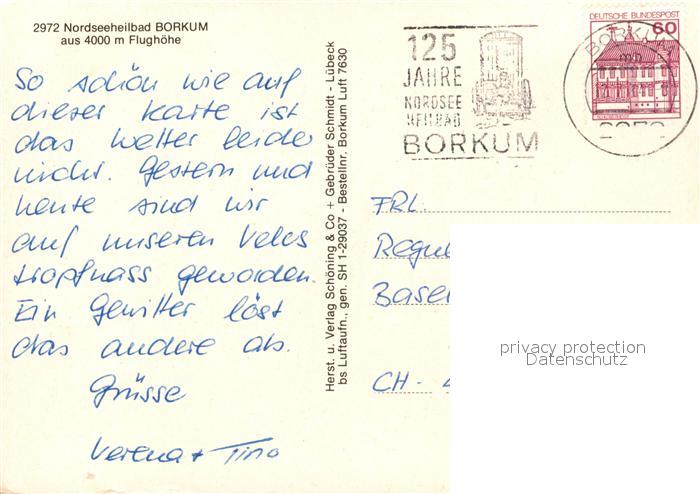 2972 Nordseeheilbad BORKUM
aus 4000 m Flughöhe
So schön wie auf
dieser Karte ist
das Wetter leider
nicht. Gestern und
heute sind wir
auf unseren Velos
tropfnass geworden.
Ein Gewitter löst
das andere ab.
Grüsse
Verena + Tino
Herst. u. Verlag Schöning & Co + Gebrüder Schmidt - Lübeck
bs Luftaufn., gen. SH 1-29037 - Bestellnr. Borkum Luft 7630
125
JAHRE
NORDSEE
HEILBAD
BORKUM
DEUTSCHE BUNDESPOST
60
BORKUM
2972
FRL.
Regu
Basel
CH-
privacy protection
Datenschutz